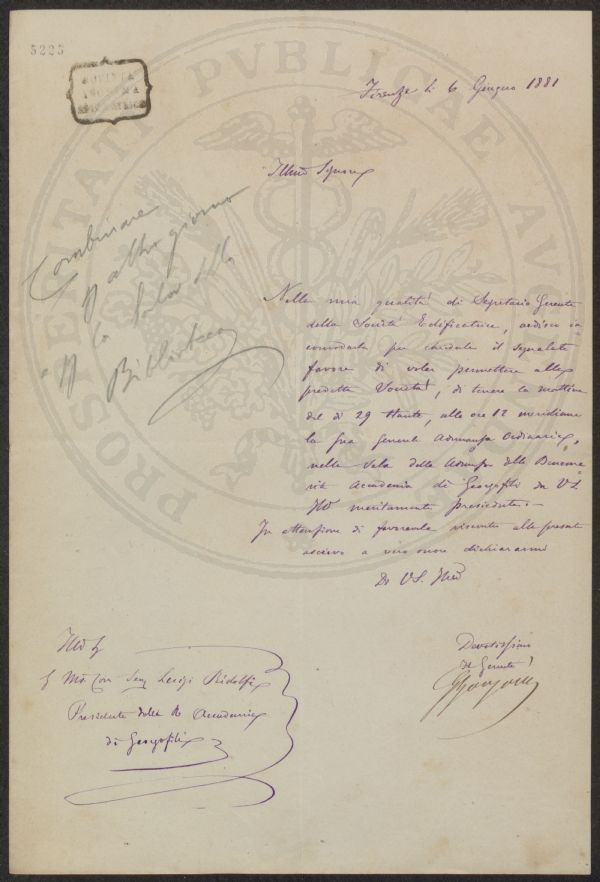 5225
SOCIETÀ
ANONIMA
EDIFICATRICE
PROSPERITATI PVBLICAE AVGENDAE
Firenze li 6 Giugno 1881
Illmo Signore
Combinare
altro giorno
Biblioteca
Nella mia qualità di Segretario Gerente
della Società Edificatrice, ardisco in
comodarla per chiederle il segnalato
favore di voler permettere alla
predetta Società, di tenere la mattina
del di 29 Stante, alle ore 12 meridiane
la sua generale Adunanza Ordinaria,
nella Sala delle Adunze della Beneme
rita Accademia di Georgofili da V.S.
Illma meritamente presieduta.
In attenzione di favorevole riscontro alla presente
ascrivo a vero onore dichiararmi
Di V.S. Illma
Devotissimo
Il Gerente
Illmo Sig
Luigi Ridolfi
Presidente della R Accademia
di Georgofili